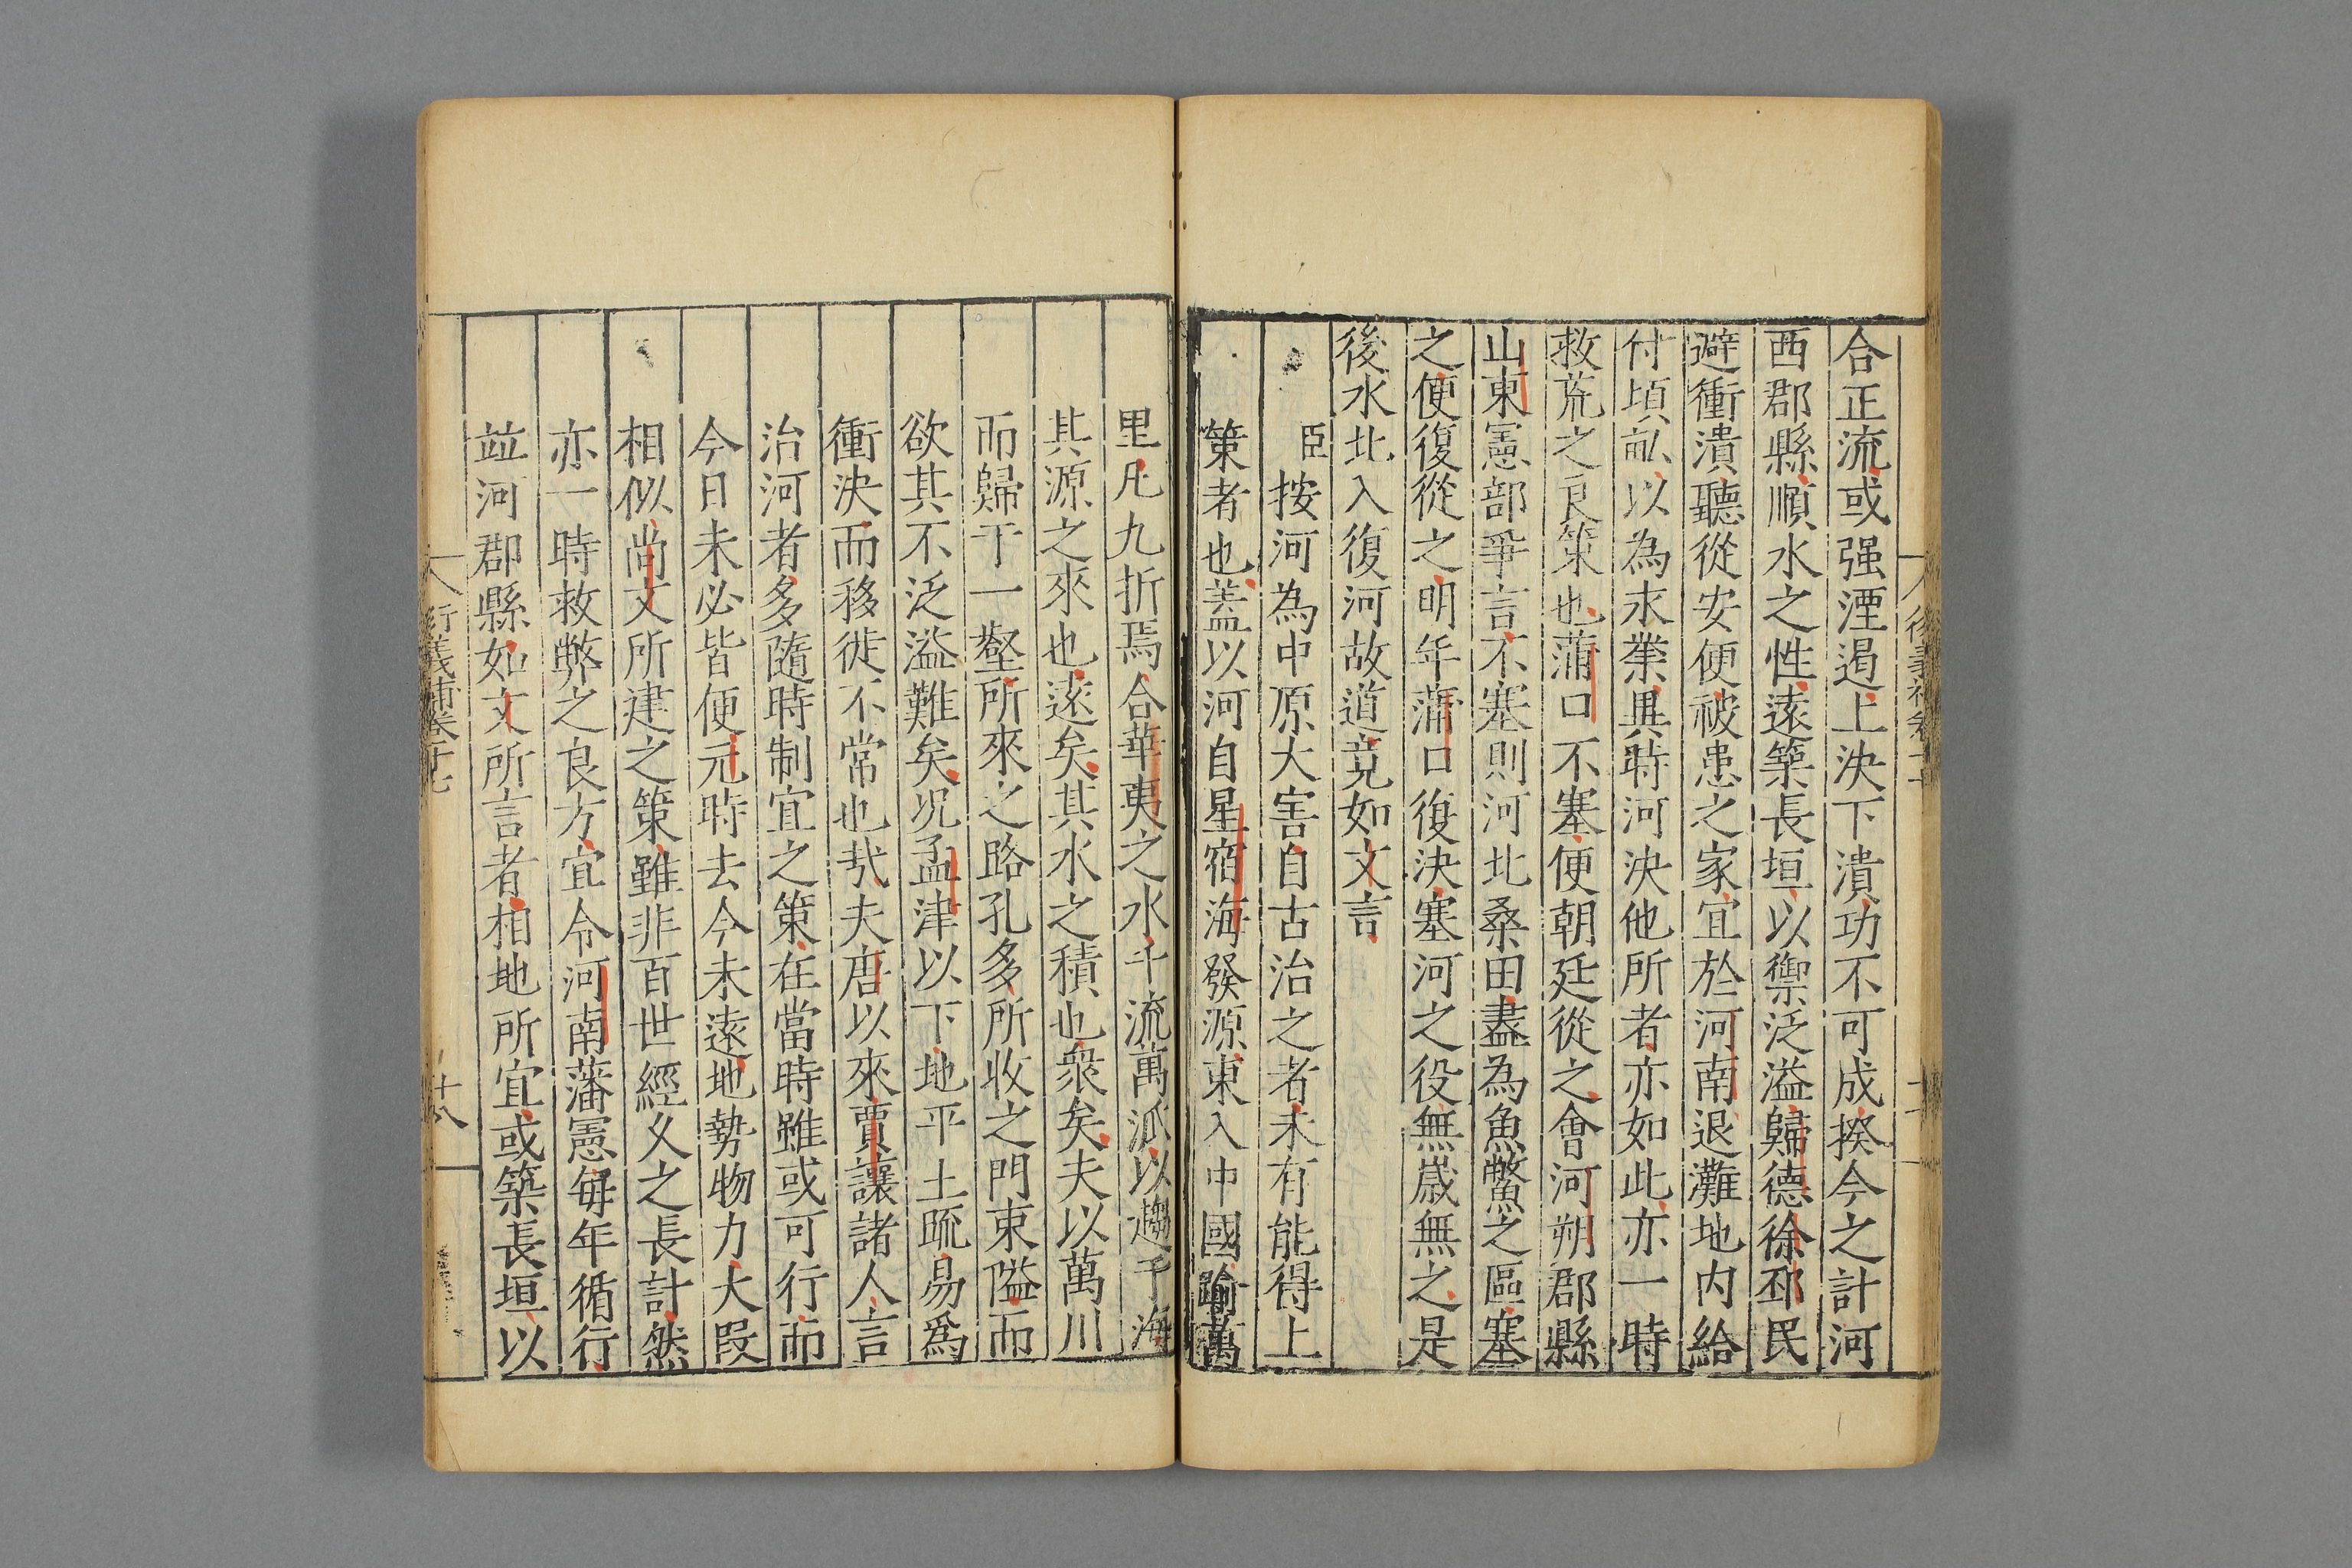 合正流或强湮遏上決下潰功不可成揆今之計河
西郡縣順水之性遠築長垣以禦泛溢歸德徐邳民
避衝潰聽從安便被患之家宜於河南退灘地内給
付頃畆以為永業異時河決他所者亦如此亦一時
救荒之良策也蒲口不塞便朝廷從之會河朔郡縣
山東憲部爭言不塞則河北桑田盡為魚鱉之區塞
之便復從之明年蒲口復決塞河之役無歲無之是
後水北入復河故道竟如文言
臣按河為中原大害自古治之者未有能得上
策者也葢以河自星宿海發源東入中國踰萬
里凡九折焉合華夷之水千流萬派以趨于海
其源之來也遠矣其水之積也衆矣夫以萬川
而歸于一壑所來之路孔多所收之門束隘而
欲其不泛溢難矣况孟津以下地平土疏易爲
衝決而移徙不常也㢤夫唐以來賈讓諸人言
治河者多隨時制宜之策在當時雖或可行而
今日未必皆便元時去今未遠地勢物力大段
相似尚文所建之策雖非百世經久之長計然
亦一時救弊之良方宜令河南藩憲每年循行
並河郡縣如文所言者相地所宜或築長垣以
衍義補卷十七
十八